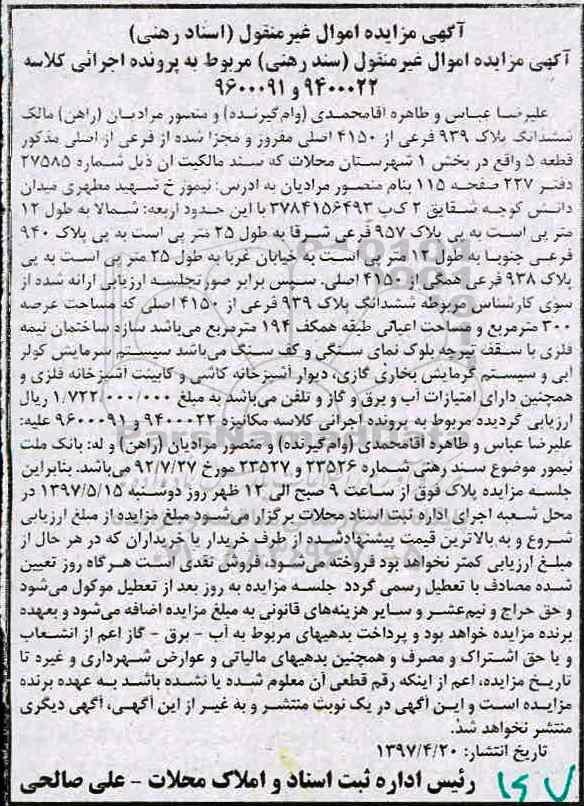 آگهی مزایده اموال غیرمنقول (اسناد رهنی)
آگهی مزایده اموال غیرمنقول (سند رهنی) مربوط به پرونده اجرائی کلاسه
۹۴۰۰۰۲۲ و ۹۶۰۰۰۹۱
علیرضا عباس و طاهره آقامحمدی (وام‌گیرنده) و منصور مرادیان (راهن) مالک
ششدانگ پلاک ۹۳۹ فرعی از ۴۱۵۰ اصلی مفروز و مجزا شده از فرعی از اصلی مذکور
قطعه ۵ واقع در بخش ۱ شهرستان محلات که سند مالکیت آن ذیل شماره ۲۷۵۸۵
دفتر ۲۲۷ صفحه ۱۱۵ بنام منصور مرادیان به آدرس: نیمور خ شهید مطهری میدان
دانش کوچه شقایق ۲ ک‌پ ۳۷۸۴۱۵۶۴۹۳ با این حدود اربعه: شمالا به طول ۱۲
متر پی است به پی پلاک ۹۵۷ فرعی شرقا به طول ۲۵ متر پی است به پی پلاک ۹۴۰
فرعی جنوبا به طول ۱۲ متر پی است به خیابان غربا به طول ۲۵ متر پی است به پی
پلاک ۹۳۸ فرعی همگی از ۴۱۵۰ اصلی. سپس برابر صورتجلسه ارزیابی ارائه شده از
سوی کارشناس مربوطه ششدانگ پلاک ۹۳۹ فرعی از ۴۱۵۰ اصلی که مساحت عرصه
۳۰۰ مترمربع و مساحت اعیانی طبقه همکف ۱۹۴ مترمربع می‌باشد سازه ساختمان نیمه
فلزی با سقف تیرچه بلوک نمای سنگی و کف سنگ می‌باشد سیستم سرمایش کولر
آبی و سیستم گرمایش بخاری گازی، دیوار آشپزخانه کاشی و کابینت آشپزخانه فلزی و
همچنین دارای امتیازات آب و برق و گاز و تلفن می‌باشد به مبلغ ۱/۷۲۲/۰۰۰/۰۰۰ ریال
ارزیابی گردیده مربوط به پرونده اجرائی کلاسه مکانیزه ۹۴۰۰۰۲۲ و ۹۶۰۰۰۹۱ علیه:
علیرضا عباس و طاهره آقامحمدی (وام‌گیرنده) و منصور مرادیان (راهن) و له: بانک ملت
نیمور موضوع سند رهنی شماره ۲۳۵۲۶ و ۲۳۵۲۷ مورخ ۹۲/۷/۲۷ می‌باشد. بنابراین
جلسه مزایده پلاک فوق از ساعت ۹ صبح الی ۱۲ ظهر روز دوشنبه ۱۳۹۷/۵/۱۵ در
محل شعبه اجرای اداره ثبت اسناد محلات برگزار می‌شود مبلغ مزایده از مبلغ ارزیابی
شروع و به بالاترین قیمت پیشنهادشده از طرف خریدار یا خریداران که در هر حال از
مبلغ ارزیابی کمتر نخواهد بود فروخته می‌شود، فروش نقدی است هرگاه روز تعیین
شده مصادف با تعطیل رسمی گردد جلسه مزایده به روز بعد از تعطیل موکول می‌شود
و حق حراج و نیم‌عشر و سایر هزینه‌های قانونی به مبلغ مزایده اضافه می‌شود و بعهده
برنده مزایده خواهد بود و پرداخت بدهیهای مربوط به آب - برق - گاز اعم از انشعاب
و یا حق اشتراک و مصرف و همچنین بدهیهای مالیاتی و عوارض شهرداری و غیره تا
تاریخ مزایده، اعم از اینکه رقم قطعی آن معلوم شده یا نشده باشد به عهده برنده
مزایده است و این آگهی در یک نوبت منتشر و به غیر از این آگهی، آگهی دیگری
منتشر نخواهد شد.
تاریخ انتشار: ۱۳۹۷/۴/۲۰
رئیس اداره ثبت اسناد و املاک محلات - علی صالحی